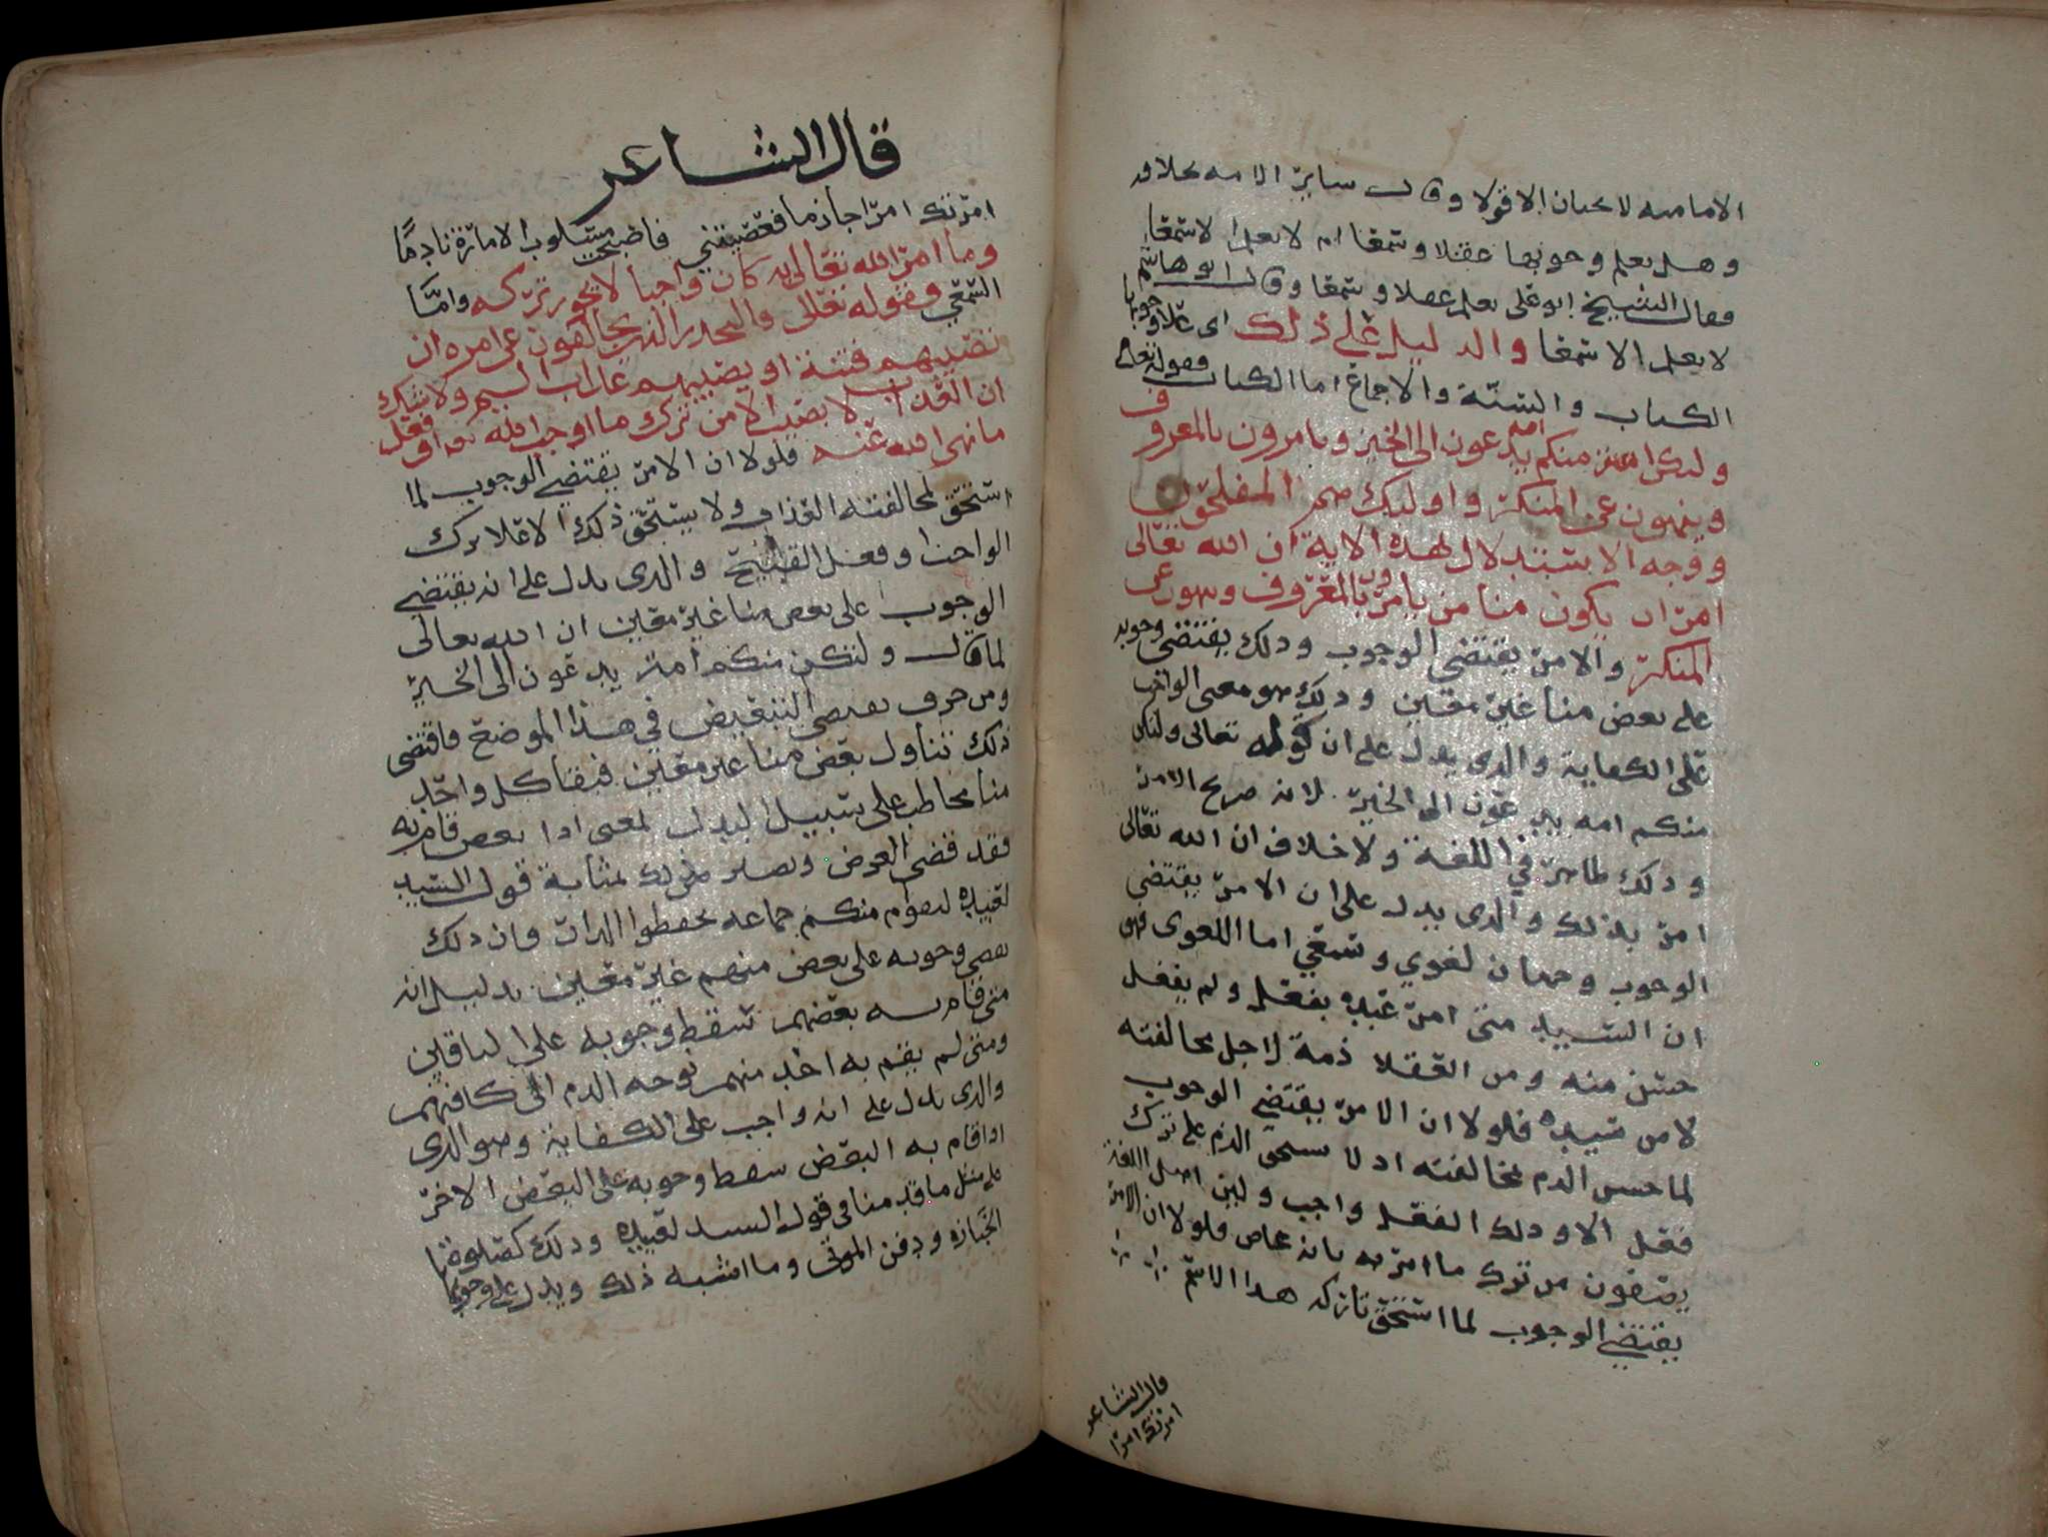 الاماميه لا يجبان الا قولا وقال ساير الامه بخلافه
وهل يعلم وجوبها عقلا وسمعا ام لا يعلم الا سمعا
فقال الشيخ ابو علي يعلم عقلا وسمعا وقال ابو هاشم
لا يعلم الا سمعا والدليل على ذلك اى على وجوبها
الكتاب والسنة والاجماع اما الكتاب فقوله تعالى
ولتكن منكم امه يدعون الى الخير ويامرون بالمعروف
وينهون عن المنكر واوليك هم المفلحون
ووجه الاستدلال بهذه الاية ان الله تعالى
امر ان يكون منا من يامر بالمعروف وينهون عن
المنكر والامر يقتضي الوجوب وذلك يقتضي وجوبه
على بعض منا غير معين وذلك هو معنى الواجب
على الكفاية والذي يدل على ان قوله تعالى ولتكن
منكم امه يدعون الى الخير لانه صريح الامر
وذلك ظاهر في اللغة ولا خلاف ان الله تعالى
امر بذلك والذي يدل على ان الامر يقتضي
الوجوب وجهان لغوي وسمعي اما اللغوي فهو
ان السيد متى امر عبده بفعل ولم يفعل
حسن منه ومن العقلا ذمه لاجل مخالفته
لامر سيده فلولا ان الامر يقتضي الوجوب
لما حسن الذم بمخالفته اذ لا يستحق الذم على ترك
فعل الا وذلك الفعل واجب ولان اهل اللغة
يصفون من ترك ما امر به بانه عاص فلولا ان الامر
يقتضي الوجوب لما استحق تاركه هذا الاسم
قال الشاعر
امرتك امرا
قال الشاعر
امرتك امرا جازما فعصيتني فاصبحت مسلوب الامارة نادما
وما امر الله تعالى به كان واجبا لا يجوز تركه واما
السمعي فقوله تعالى فاليحذر الذين يخالفون عن امره ان
تصيبهم فتنة او يصيبهم عذاب اليم ولا شك
ان العذاب لا يصيب الا من ترك ما اوجب الله او فعل
ما نهى الله عنه فلولا ان الامر يقتضي الوجوب لما
استحق لمخالفته العذاب ولا يستحق ذلك الا على ترك
الواجب او فعل القبيح والذي يدل على انه يقتضي
الوجوب على بعض منا غير معين ان الله تعالى
لما قال ولتكن منكم امة يدعون الى الخير
ومن حرف يقتضي التبعيض في هذا الموضع فاقتضى
ذلك تناول بعض منا غير معين فبقا كل واحد
منا مخاطب على سبيل البدل بمعنى اذا بعض قام به
فقد قضى الفرض ويصير ذلك بمثابة قول السيد
لعبيده ليقوم منكم جماعه يحفظوا الدار فان ذلك
يقتضي وجوبه على بعض منهم غير معين بدليل انه
متى قام به بعضهم سقط وجوبه على الباقين
ومتى لم يقم به احد منهم توجه الذم الى كافتهم
والذي يدل على انه واجب على الكفاية وهو الذي
اذا قام به البعض سقط وجوبه على البعض الاخر
على مثل ما قدمنا في قول السيد لعبيده وذلك كصلوة
الجنازه ودفن الموتى وما اشبه ذلك ويدل على وجوبها